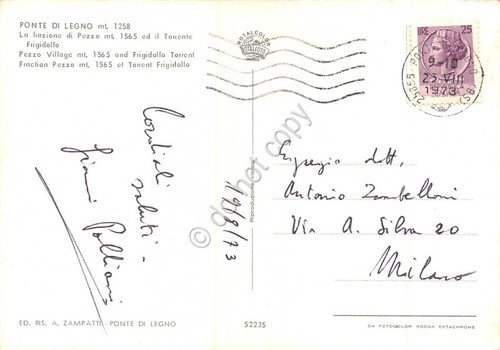 PONTE DI LEGNO mt. 1258
La frazione di Pezzo mt. 1565 ed il Torrente
Frigidolfo
Pezzo Village mt. 1565 and Frigidolfo Torrent
Fraction Pezzo mt. 1565 et Torrent Frigidolfo
ROTALCOLOR
LIRE 25
9-10
23 VIII
1973
25056 PO
(BS)
Cordiali
saluti -
Gianni
19/8/73
Egregio dott.
Antonio Zambelloni
Via A. Silva 20
Milano
do not copy
ED. RIS. A. ZAMPATTI - PONTE DI LEGNO
S2235
DA FOTOCOLOR KODAK EKTACHROME